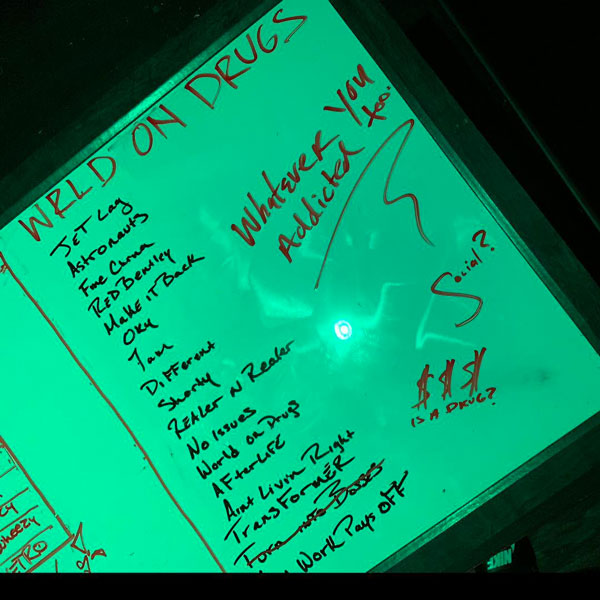 WRLD ON DRUGS
JET Lag
Astronauts
Fine China
RED Bentley
Make it Back
Oxy
7am
Different
Shorty
REALER N Realer
No Issues
World on Drugs
AFterLIFE
Aint Livin Right
TransFORMER
WORK Pays OFF
Whatever You
Addicted too.
Social?
$ $ $
IS A DRUG?
wheezy
ETRO